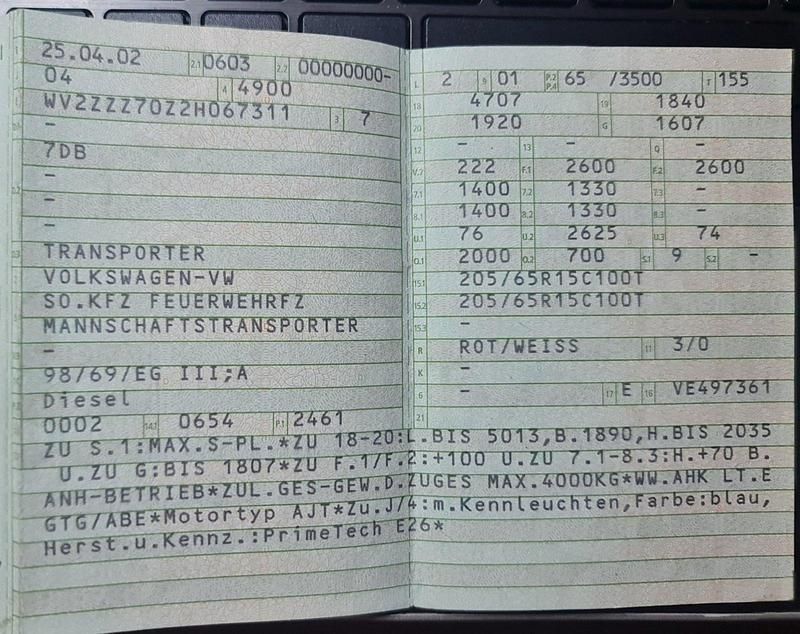 25.04.02 2.1 0603 2.2 00000000-
04 4 4900
WV2ZZZ70Z2H067311 3 7
-
7DB
-
-
-
TRANSPORTER
VOLKSWAGEN-VW
SO.KFZ FEUERWEHRFZ
MANNSCHAFTSTRANSPORTER
-
98/69/EG III;A
Diesel
0002 14.1 0654 P.1 2461
L 2 9 01 P.2 P.4 65 /3500 T 155
18 4707 19 1840
20 1920 G 1607
12 - 13 - Q -
V.7 222 F.1 2600 F.2 2600
7.1 1400 7.2 1330 7.3 -
8.1 1400 8.2 1330 8.3 -
U.1 76 U.2 2625 U.3 74
O.1 2000 O.2 700 S.1 9 S.2 -
15.1 205/65R15C100T
15.2 205/65R15C100T
15.3 -
R ROT/WEISS 11 3/0
K -
6 - 17 E 16 VE497361
21
ZU S.1:MAX.S-PL.*ZU 18-20:L.BIS 5013,B.1890,H.BIS 2035
U.ZU G:BIS 1807*ZU F.1/F.2:+100 U.ZU 7.1-8.3:H.+70 B.
ANH-BETRIEB*ZUL.GES-GEW.D.ZUGES MAX.4000KG*WW.AHK LT.E
GTG/ABE*Motortyp AJT*Zu.J/4:m.Kennleuchten,Farbe:blau,
Herst.u.Kennz.:PrimeTech E26*